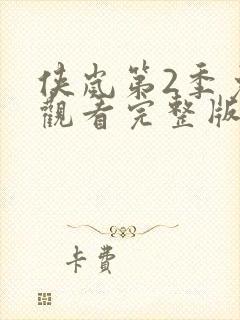 侠岚第2季
觀看完整版
卡費